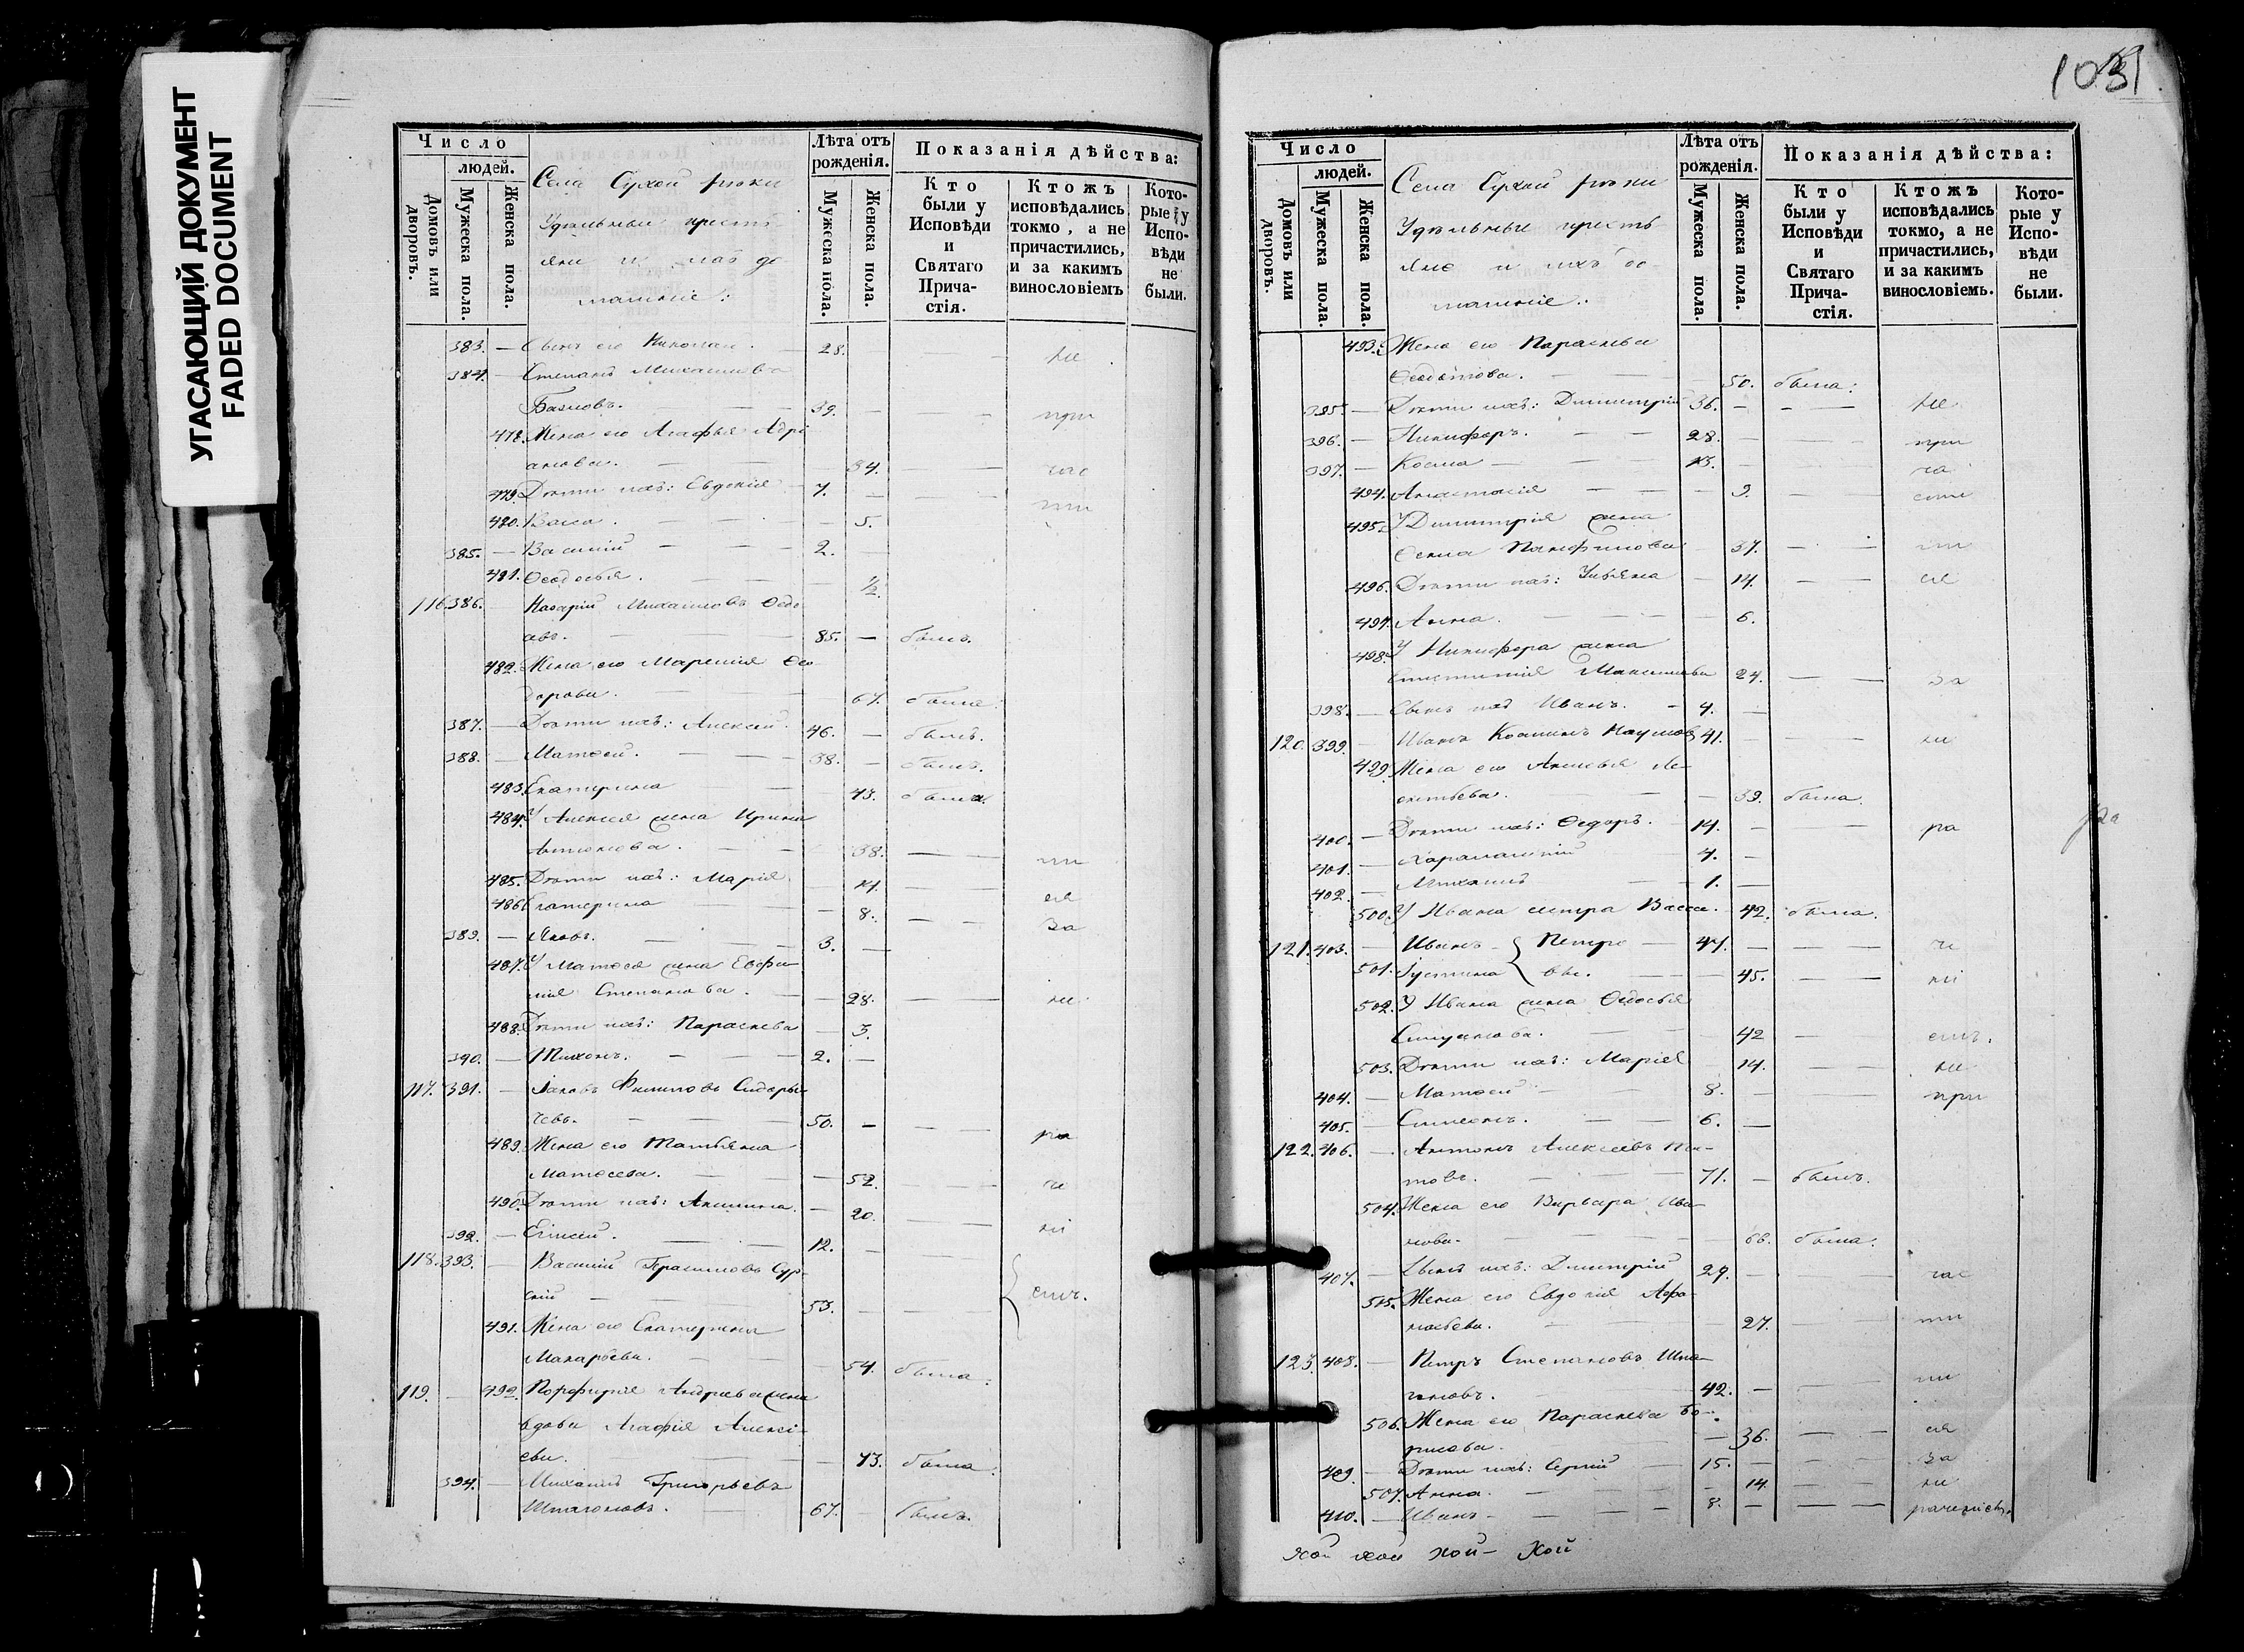 УГАСАЮЩИЙ ДОКУМЕНТ
FADED DOCUMENT
Число
людей.
Домовъ или дворовъ.
Мужеска пола.
Женска пола.
Села Сухой рѣки
Удѣльные кресть-
яне и ихъ до-
машніе:
Лѣта отъ рожденія.
Мужеска пола.
Женска пола.
Показанія дѣйства:
Кто были у Исповѣди и Святаго Прича-стія.
Ктожъ исповѣдались токмо, а не причастились, и за какимъ винословіемъ
Кото-рые у Испо-вѣди не были.
383. — Сынъ его Николай. — 28. — — не
384. — Степанъ Михаиловъ
39. — — при
478. Жена его Агафья Адрі
анова. — 34. — — час
479. Дѣти ихъ: Евдокія 7. — — ти
480. Васса. — — 5.
385. — Василій — — 2. —
481. Ѳеодосья. — — 1/2.
116. 386. — Назарій Михаиловъ
85. — былъ.
482. Жена его Ѳео
дорова. — — 67. была.
387. — Дѣти ихъ: Алексѣй. 46. — былъ.
388. — Матѳей. — — 38. — былъ.
483. Екатерина — — 43. была.
484. У Алексѣя жена Ирина
Антонова. — — 38. — — ти
485. Дѣти ихъ: Марія — 14. — — ся
486. Екатерина — — 8. — — за
389. — Яковъ. — — 3. —
487. У Матѳея жена Евфи
мія Степанова. — — 28. — — не
488. Дѣти ихъ: Параскева — 3.
390. — Тихонъ. — — 2. —
117. 391. — Іаковъ Филиповъ Сидоры
чевъ. — — 50. — — — ра
489. Жена его Татьяна
Матѳеева. — — 52. — — че
490. Дѣти ихъ: Акилина. — 20. — — ні
392. — Елисей. — — 12. — —
118. 393. — Василій Герасимовъ Сур-
скій — — 53. — — емъ.
491. Жена его Екатерина
Макарьева. — — 54. была.
119. — 492. Порфирія Андреева жена
вдова Агафія Алексі-
ева. — — 43. была.
394. — Михаилъ Григорьевъ
Шпагоновъ. 67. — былъ.
1031
Число
людей.
Домовъ или дворовъ.
Мужеска пола.
Женска пола.
Села Сухой рѣки
Удѣльные кресть
яне и ихъ до-
машніе:
Лѣта отъ рожденія.
Мужеска пола.
Женска пола.
Показанія дѣйства:
Кто были у Исповѣди и Святаго Прича-стія.
Ктожъ исповѣдались токмо, а не причастились, и за какимъ винословіемъ.
Кото-рые у Испо-вѣди не были.
493. Жена его Параскева
Ѳеодотова. — — 50. была:
395. — Дѣти ихъ: Димитрій 36. — — — не
396. — Никифоръ. — — 28. — — при
397. — Косма — 13. — ча
494. Анастасія — — — 9. — сти
495. У Димитрія жена
Панфилова 37. — — ти
496. Дѣти ихъ: Ульяна — 14. — — ся
497. Анна. — — — 6.
498. У Никифора жена
Максимова 24. — — за
398. — Сынъ ихъ Иванъ. — 4. —
120. 399. — Иванъ Косминъ Наумовъ 41. — — не
499. Жена его Акилина Ле-
онтьева. — — 39. была.
400. — Дѣти ихъ: Ѳедоръ. — 14. — — ра ра
401. — Харалампій 4. —
402. — Михаилъ — — 1. —
500. У Ивана сестра Васса. 42. была.
121. 403. — Иванъ Петро — 47. — — че
501. Іустина вы. — — 45. — — ні
502. У Ивана жена Ѳедосья
— — 42 — емъ.
503. Дѣти ихъ: Марія — 14. — — не
404. — Матѳей — 8. — — при
405. — Симеонъ. — — 6. —
122. 406. — Антонъ Алексѣевъ Ти-
товъ. — — 71. — былъ.
504. Жена его Варвара Ива
нова. — — 66. была:
407. — Сынъ ихъ: Димитрій 29. — — час
505. Жена его Евдокія Афа-
насьева. — — 27. — ти
123. 408. — Петръ Степановъ Шпа-
гоновъ. — 42. — — ти
506. Жена его Параскева Бо-
рисова. — — 36. — — ся
409. — Дѣти ихъ: Сергій — 15. — — — за
507. Анна. — — — 14. — — не
410. — Иванъ — — — 8. — — — раченіемъ.
хой хой хой — Хой